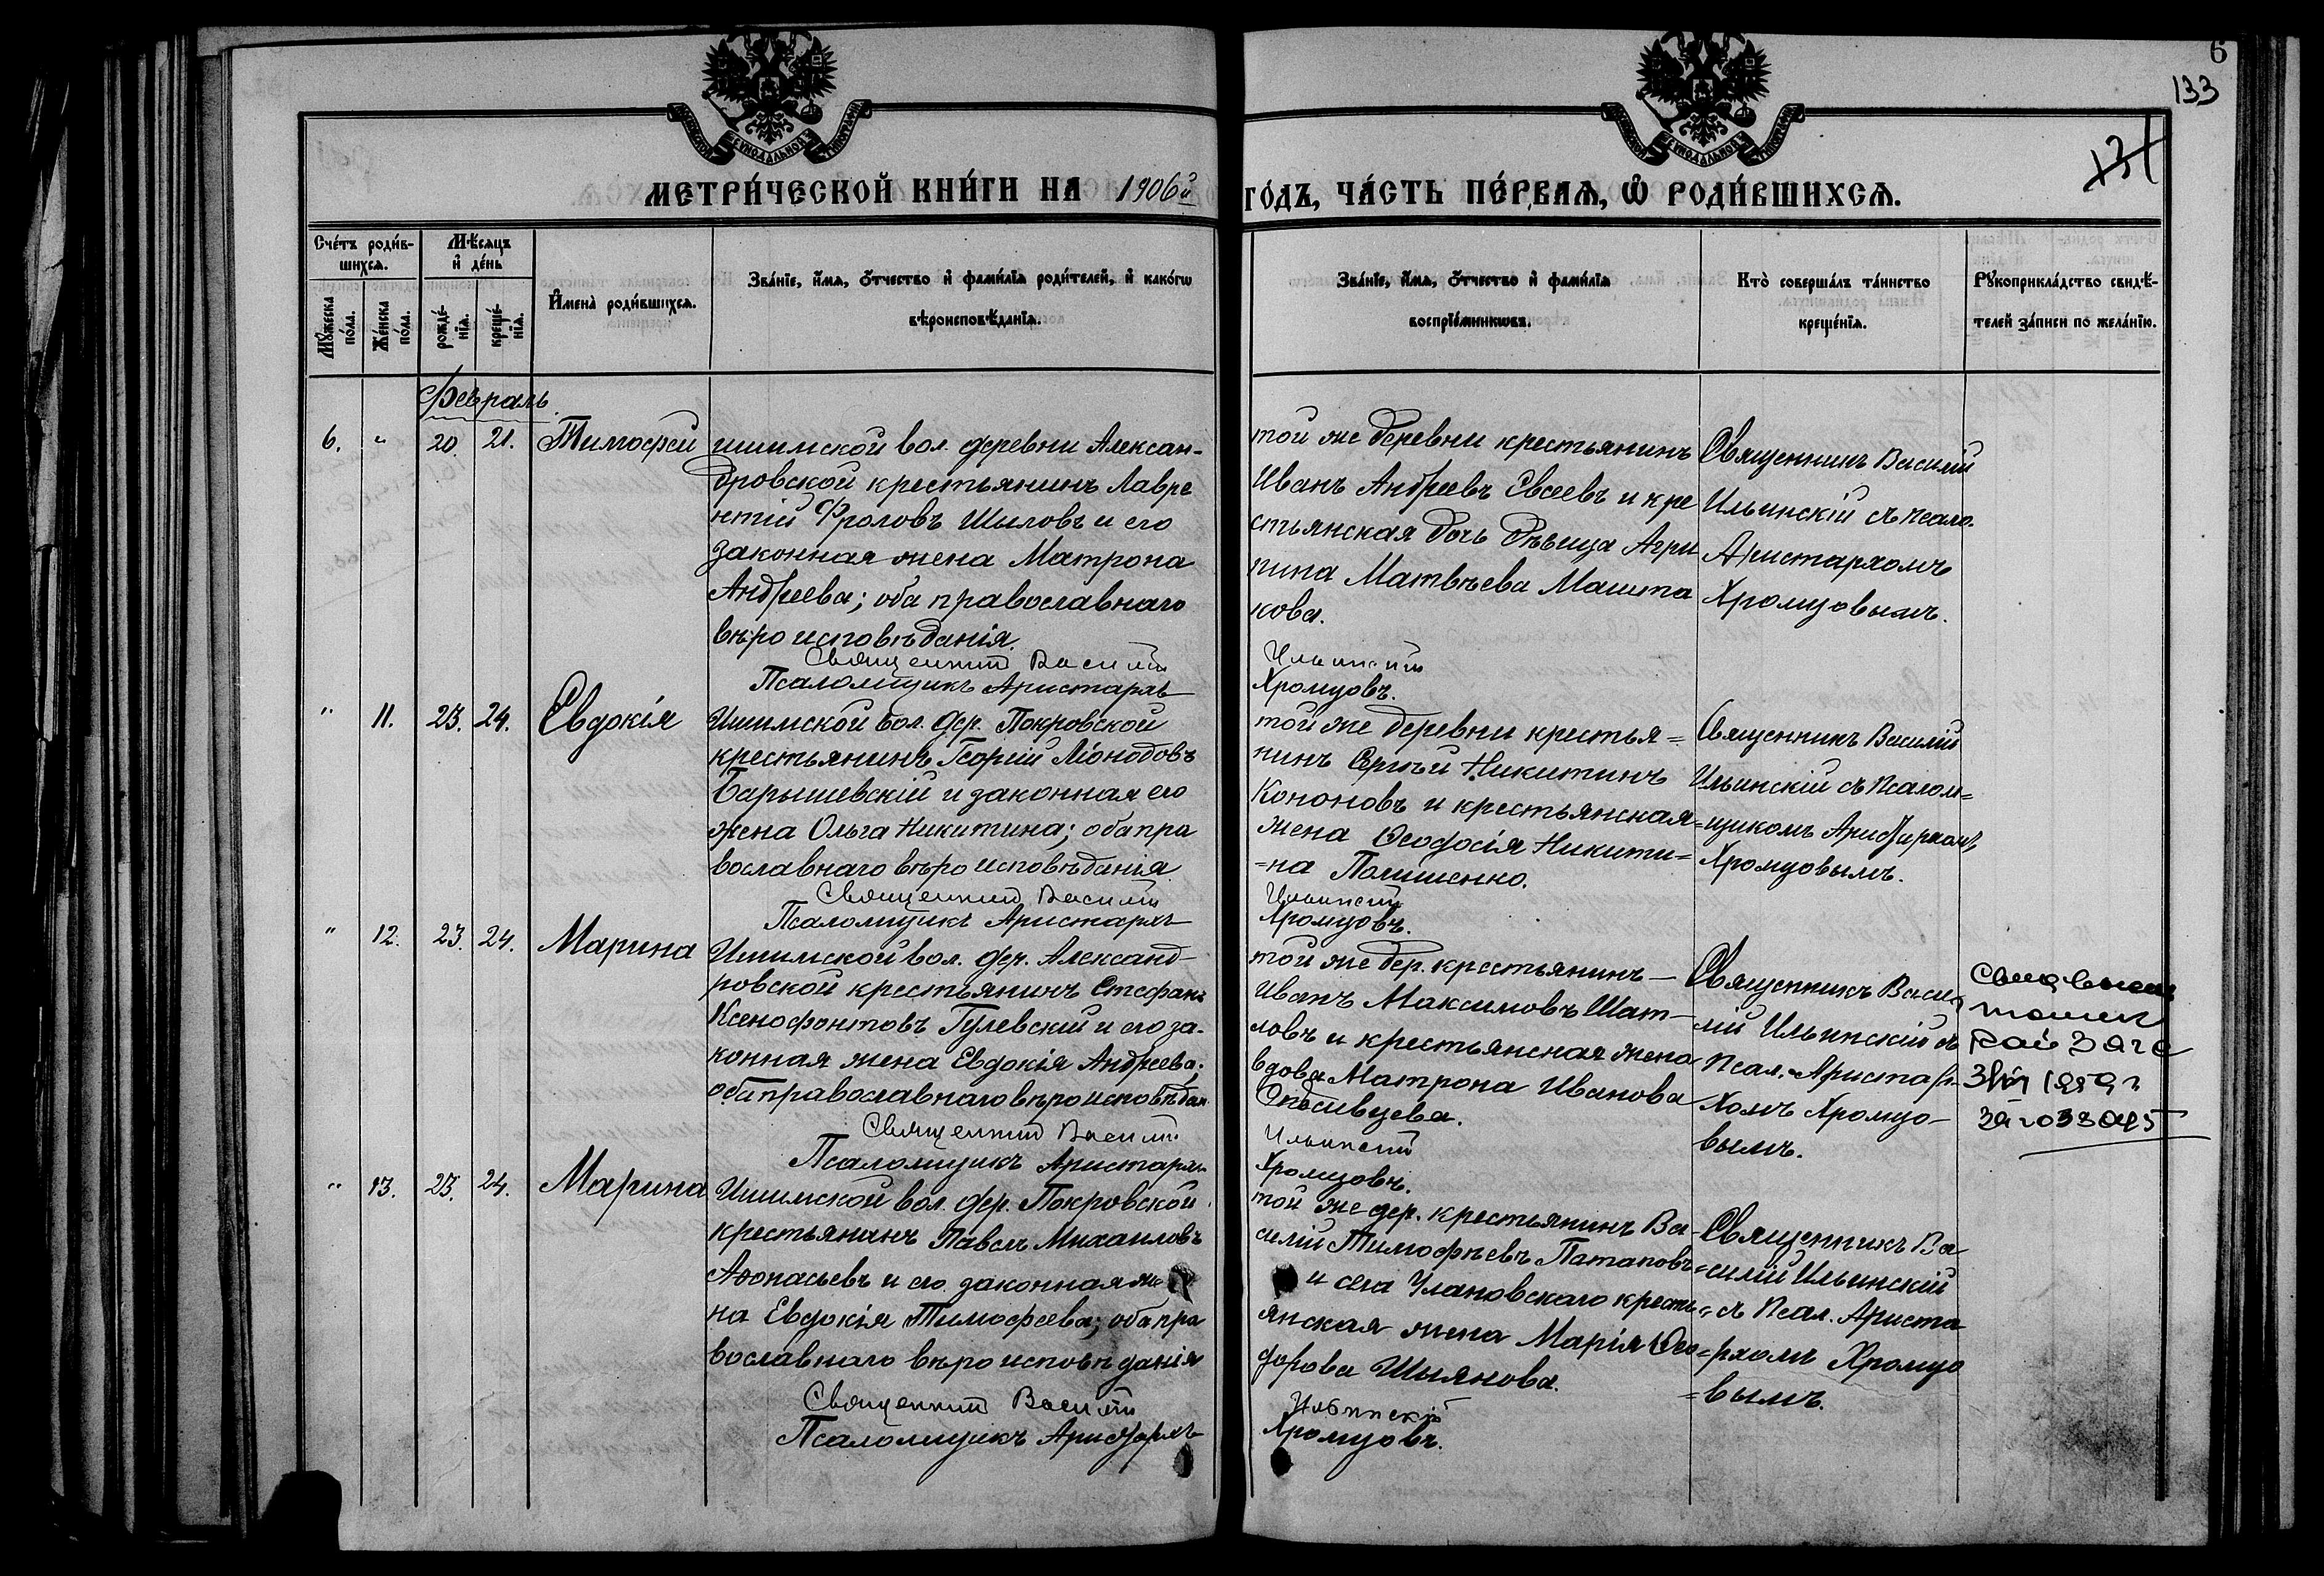 6
133
131
МЕТРИ́ЧЕСКОЙ КНИ́ГИ НА 1906й ГО́ДЪ, ЧА́СТЬ ПЕ́РВАѦ, Ѽ РОДИ́ВШИХСѦ.
Сче́тъ роди́в-
шихсѧ.
Мꙋ́жеска
по́ла.
Же́нска
по́ла.
Мѣ́сѧцъ
и҆ де́нь
рожде́-
нїѧ.
креще́-
нїѧ.
И҆мена̀ роди́вшихсѧ.
Зва́нїе, и҆́мѧ, ѻ҆́тчество и҆ фами́лїѧ роди́телей, и҆ како́гѡ
вѣроисповѣ́данїѧ.
Зва́нїе, и҆́мѧ, ѻ҆́тчество и҆ фами́лїѧ
воспрїе́мникѡвъ.
Кто̀ соверша́лъ та́инство
креще́нїѧ.
Рꙋкоприкла́дство свидѣ́-
телей за́писи по жела́нїю.
Февраль
6. " 20. 21. Тимофей
ишимской вол. деревни Алексан-
дровской крестьянинъ Лавре
нтій Фроловъ Шиловъ и его
законная жена Матрона
Андреева; оба православнаго
вѣроисповѣданія.
Священник Василій Ильинскій
Псаломщикъ Аристархъ Хромцовъ.
той же деревни крестьянинъ
Иванъ Андреевъ Евсеевъ и кре
стьянская дочь дѣвица Агри
пина Матвѣева Машта
кова.
Священникъ Василій
Ильинскій съ псало.
Аристархомъ
Хромцовымъ.
" 11. 23. 24. Евдокія
Ишимской вол. дер. Покровской
крестьянинъ Георгій
Барышевскій и законная его
жена Ольга Никитина; оба пра
вославнаго вѣроисповѣданія
Священник Василій Ильинскій
Псаломщикъ Аристархъ Хромцовъ.
той же деревни крестья=
нинъ Сергѣй Никитинъ
Кононовъ и крестьянская
жена Ѳеодосія Никити=
=на Полишенко.
Священникъ Василій
Ильинскій съ Псалом=
=щикомъ Аристархомъ
Хромцовымъ.
" 12. 23. 24. Марина
Ишимской вол. дер. Александ-
ровской крестьянинъ Стефанъ
Ксенофонтовъ Гулевскій и его за-
конная жена Евдокія Андреева;
оба православнаго вѣроисповѣдан.
Священник Василій Ильинскій
Псаломщикъ Аристархъ Хромцовъ.
той же дер. крестьянинъ
Иванъ Максимовъ Шат-
ловъ и крестьянская жена
вдова Матрона Иванова
Спесивцева.
Священникъ Васи
лій Ильинскій съ
Псал. Аристар-
хомъ Хромцо-
вымъ.
" 13. 23. 24. Марина
Ишимской вол. дер. Покровской
крестьянинъ Павелъ Михаиловъ
Аѳонасьевъ и его законная же
на Евдокія Тимофеева; оба пра
вославнаго вѣроисповѣданія
Священник Василій Ильинскій
Псаломщикъ Аристархъ Хромцовъ.
той же дер. крестьянинъ Ва-
силій Тимофѣевъ Потаповъ
и села Улановскаго кресть
янская жена Марія Ѳео-
дорова Шиянова.
Священникъ Ва
=силій Ильинскій
съ Псал. Ариста
=рхомъ Хромцо
=вымъ.